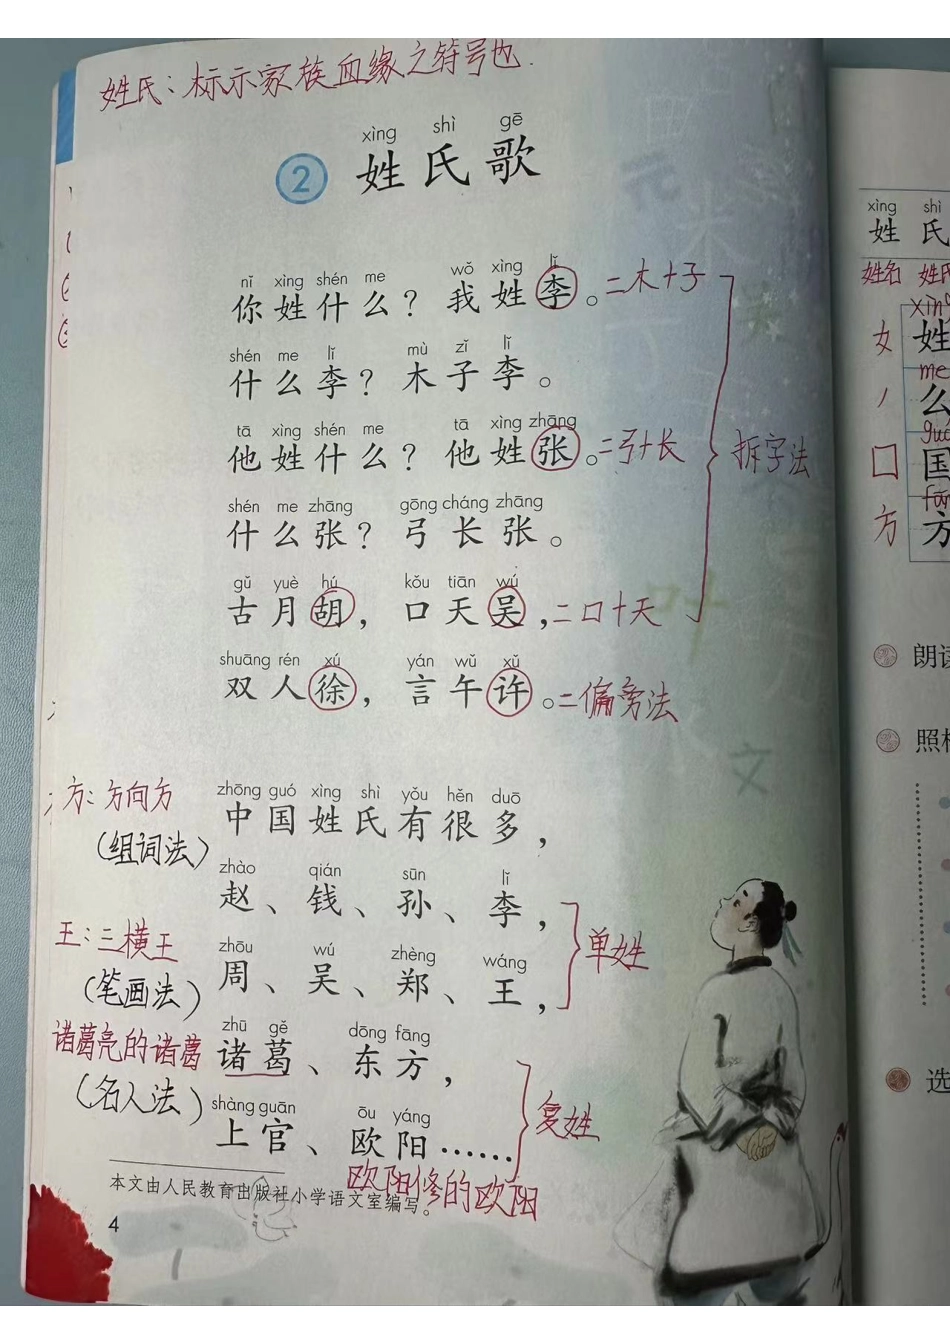 姓氏：标示家族血缘之符号也.
xìng shì gē
② 姓氏歌
nǐ xìng shén me wǒ xìng lǐ
你姓什么？我姓李。=木+子
shén me lǐ mù zǐ lǐ
什么李？木子李。
tā xìng shén me tā xìng zhāng
他姓什么？他姓张。=弓+长
拆字法
shén me zhāng gōng cháng zhāng
什么张？弓长张。
gǔ yuè hú kǒu tiān wú
古月胡，口天吴，=口+天
shuāng rén xú yán wǔ xǔ
双人徐，言午许。=偏旁法
方：方向方
(组词法)
zhōng guó xìng shì yǒu hěn duō
中国姓氏有很多，
zhào qián sūn lǐ
赵、钱、孙、李，
单姓
王：三横王
(笔画法)
zhōu wú zhèng wáng
周、吴、郑、王，
诸葛亮的诸葛
(名人法)
zhū gě dōng fāng
诸葛、东方，
复姓
shàng guān ōu yáng
上官、欧阳……
欧阳修的欧阳
本文由人民教育出版社小学语文室编写。
4
文
xìng shì
姓氏
姓名 姓氏
xìng
女 姓
me
丿 么
guó
囗 国
fāng
方 方
朗读
照样
选